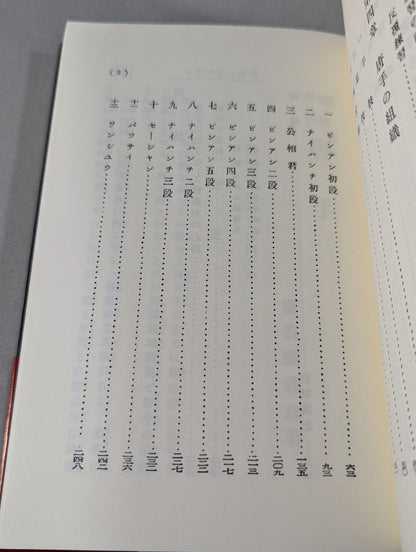 反復練習
唐手の組織
一 ピンアン初段……六三
二 ナイハンチ初段……九三
三 公相君……一三五
四 ピンアン二段……二〇九
五 ピンアン三段……二一三
六 ピンアン四段……二一七
七 ピンアン五段……二二二
八 ナイハンチ二段……二二七
九 ナイハンチ三段……二三二
十 セーシヤン……二三六
十一 パツサイ……二四二
十二 ワンシユウ……二四八